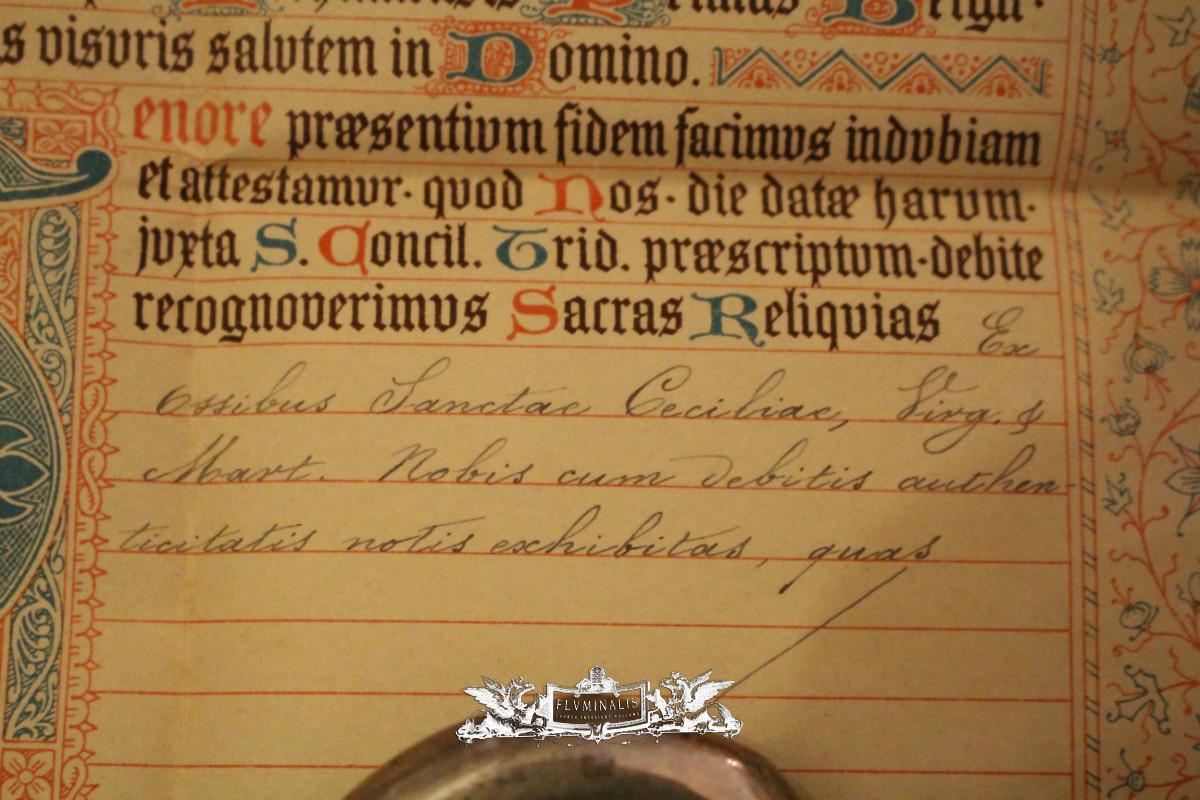 Primas Belgii.
visuris salutem in Domino.
enore præsentium fidem facimus indubiam
et attestamur. quod Nos. die datæ harum.
juxta S. Concil. Trid. præscriptum. debite
recognoverimus Sacras Reliquias Ex
ossibus Sanctae Ceciliae, Virg. &
Mart. Nobis cum debitis authen-
ticitatis notis exhibitas, quas
FLVMINALIS